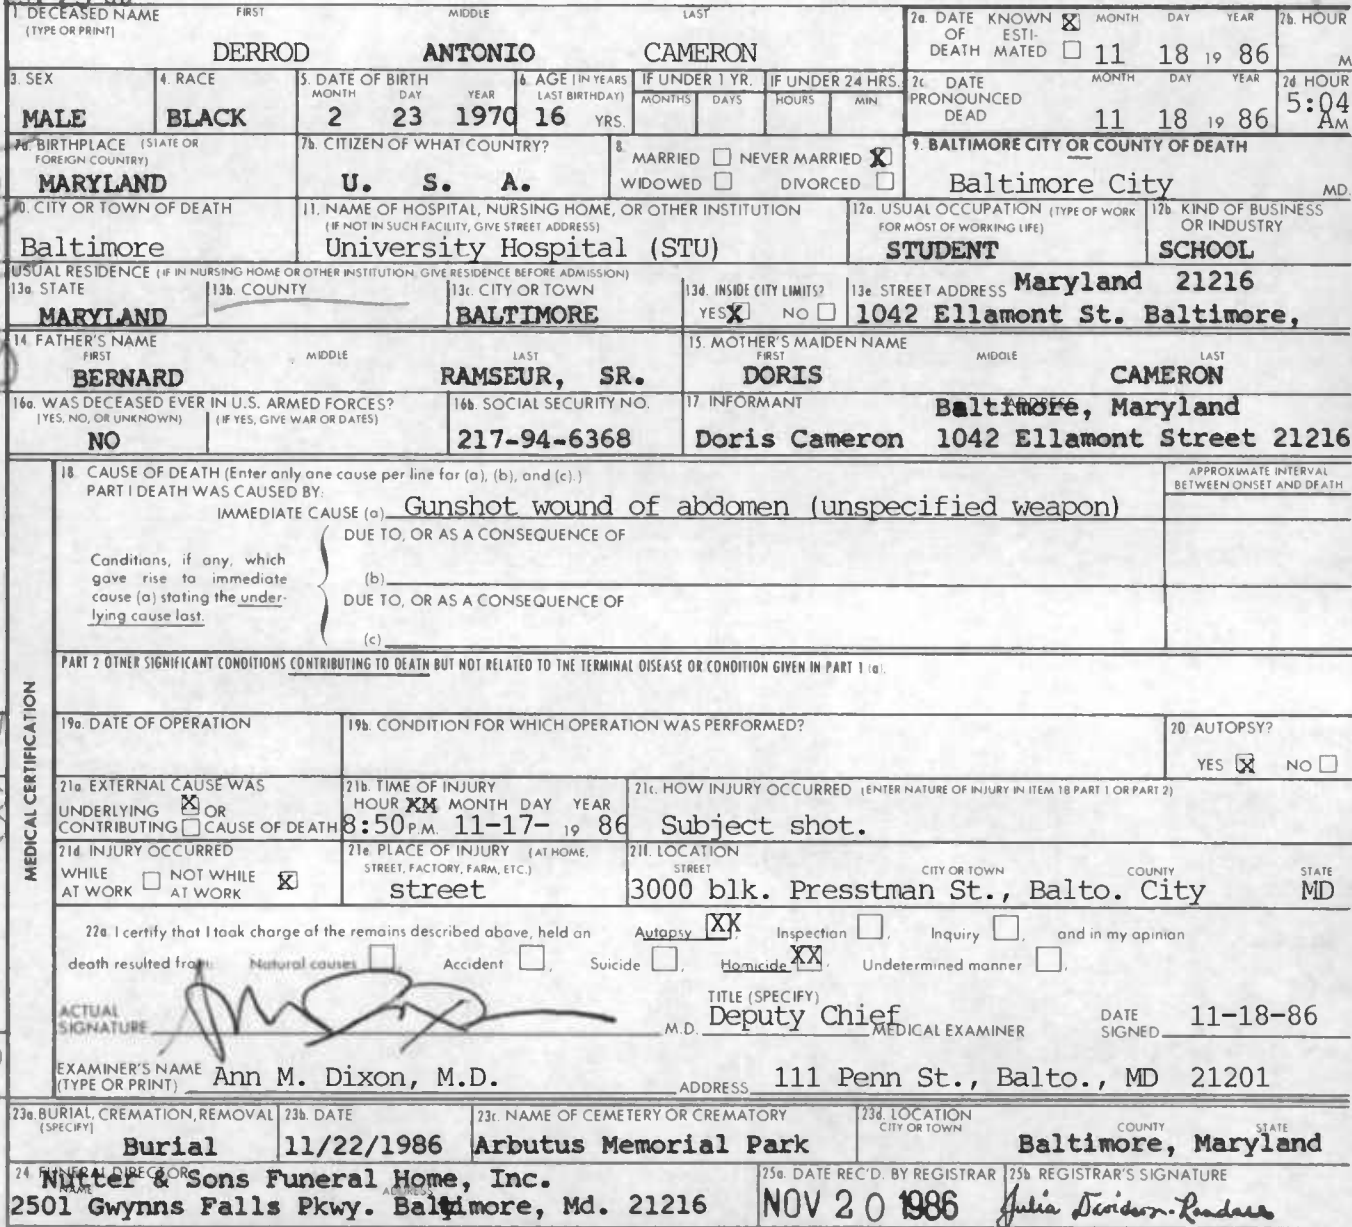 1. DECEASED NAME FIRST MIDDLE LAST
(TYPE OR PRINT)
DERROD ANTONIO CAMERON
2a. DATE KNOWN X MONTH DAY YEAR
OF ESTI-
DEATH MATED 11 18 19 86
2b. HOUR
M
3. SEX
MALE
4. RACE
BLACK
5. DATE OF BIRTH
MONTH DAY YEAR
2 23 1970
6. AGE (IN YEARS
LAST BIRTHDAY)
16 YRS.
IF UNDER 1 YR.
MONTHS DAYS
IF UNDER 24 HRS.
HOURS MIN
2c. DATE MONTH DAY YEAR
PRONOUNCED
DEAD 11 18 19 86
2d HOUR
5:04
AM
7a. BIRTHPLACE (STATE OR
FOREIGN COUNTRY)
MARYLAND
7b. CITIZEN OF WHAT COUNTRY?
U. S. A.
8.
MARRIED NEVER MARRIED X
WIDOWED DIVORCED
9. BALTIMORE CITY OR COUNTY OF DEATH
Baltimore City MD.
10. CITY OR TOWN OF DEATH
Baltimore
11. NAME OF HOSPITAL, NURSING HOME, OR OTHER INSTITUTION
(IF NOT IN SUCH FACILITY, GIVE STREET ADDRESS)
University Hospital (STU)
12a. USUAL OCCUPATION (TYPE OF WORK
FOR MOST OF WORKING LIFE)
STUDENT
12b. KIND OF BUSINESS
OR INDUSTRY
SCHOOL
USUAL RESIDENCE (IF IN NURSING HOME OR OTHER INSTITUTION, GIVE RESIDENCE BEFORE ADMISSION)
13a. STATE
MARYLAND
13b. COUNTY
13c. CITY OR TOWN
BALTIMORE
13d. INSIDE CITY LIMITS?
YES X NO
13e STREET ADDRESS Maryland 21216
1042 Ellamont St. Baltimore,
14. FATHER'S NAME
FIRST MIDDLE LAST
BERNARD RAMSEUR, SR.
15. MOTHER'S MAIDEN NAME
FIRST MIDDLE LAST
DORIS CAMERON
16a. WAS DECEASED EVER IN U.S. ARMED FORCES?
(YES, NO, OR UNKNOWN) (IF YES, GIVE WAR OR DATES)
NO
16b. SOCIAL SECURITY NO.
217-94-6368
17. INFORMANT ADDRESS
Baltimore, Maryland
Doris Cameron 1042 Ellamont Street 21216
MEDICAL CERTIFICATION
18. CAUSE OF DEATH (Enter only one cause per line for (a), (b), and (c).)
PART I DEATH WAS CAUSED BY:
APPROXIMATE INTERVAL
BETWEEN ONSET AND DEATH
IMMEDIATE CAUSE (a) Gunshot wound of abdomen (unspecified weapon)
DUE TO, OR AS A CONSEQUENCE OF
Conditions, if any, which
gave rise to immediate
cause (a) stating the under-
lying cause last.
(b)
DUE TO, OR AS A CONSEQUENCE OF
(c)
PART 2 OTHER SIGNIFICANT CONDITIONS CONTRIBUTING TO DEATH BUT NOT RELATED TO THE TERMINAL DISEASE OR CONDITION GIVEN IN PART 1 (a).
19a. DATE OF OPERATION
19b. CONDITION FOR WHICH OPERATION WAS PERFORMED?
20. AUTOPSY?
YES X NO
21a. EXTERNAL CAUSE WAS
UNDERLYING X OR
CONTRIBUTING CAUSE OF DEATH
21b. TIME OF INJURY
HOUR XM MONTH DAY YEAR
8:50 P.M. 11-17- 19 86
21c. HOW INJURY OCCURRED (ENTER NATURE OF INJURY IN ITEM 18 PART 1 OR PART 2)
Subject shot.
21d. INJURY OCCURRED
WHILE NOT WHILE
AT WORK AT WORK X
21e. PLACE OF INJURY (AT HOME,
STREET, FACTORY, FARM, ETC.)
street
21f. LOCATION
STREET CITY OR TOWN COUNTY STATE
3000 blk. Presstman St., Balto. City MD
22a. I certify that I took charge of the remains described above, held an Autopsy XX, Inspection , Inquiry , and in my opinion
death resulted from: Natural causes , Accident , Suicide , Homicide XX, Undetermined manner .
ACTUAL
SIGNATURE M.D.
TITLE (SPECIFY)
Deputy Chief MEDICAL EXAMINER
DATE
SIGNED 11-18-86
EXAMINER'S NAME
(TYPE OR PRINT) Ann M. Dixon, M.D. ADDRESS 111 Penn St., Balto., MD 21201
23a. BURIAL, CREMATION, REMOVAL
(SPECIFY)
Burial
23b. DATE
11/22/1986
23c. NAME OF CEMETERY OR CREMATORY
Arbutus Memorial Park
23d. LOCATION
CITY OR TOWN COUNTY STATE
Baltimore, Maryland
24. FUNERAL DIRECTOR
NAME ADDRESS
Nutter & Sons Funeral Home, Inc.
2501 Gwynns Falls Pkwy. Baltimore, Md. 21216
25a. DATE REC'D. BY REGISTRAR
NOV 20 1986
25b. REGISTRAR'S SIGNATURE
Julia Davidson-Randall